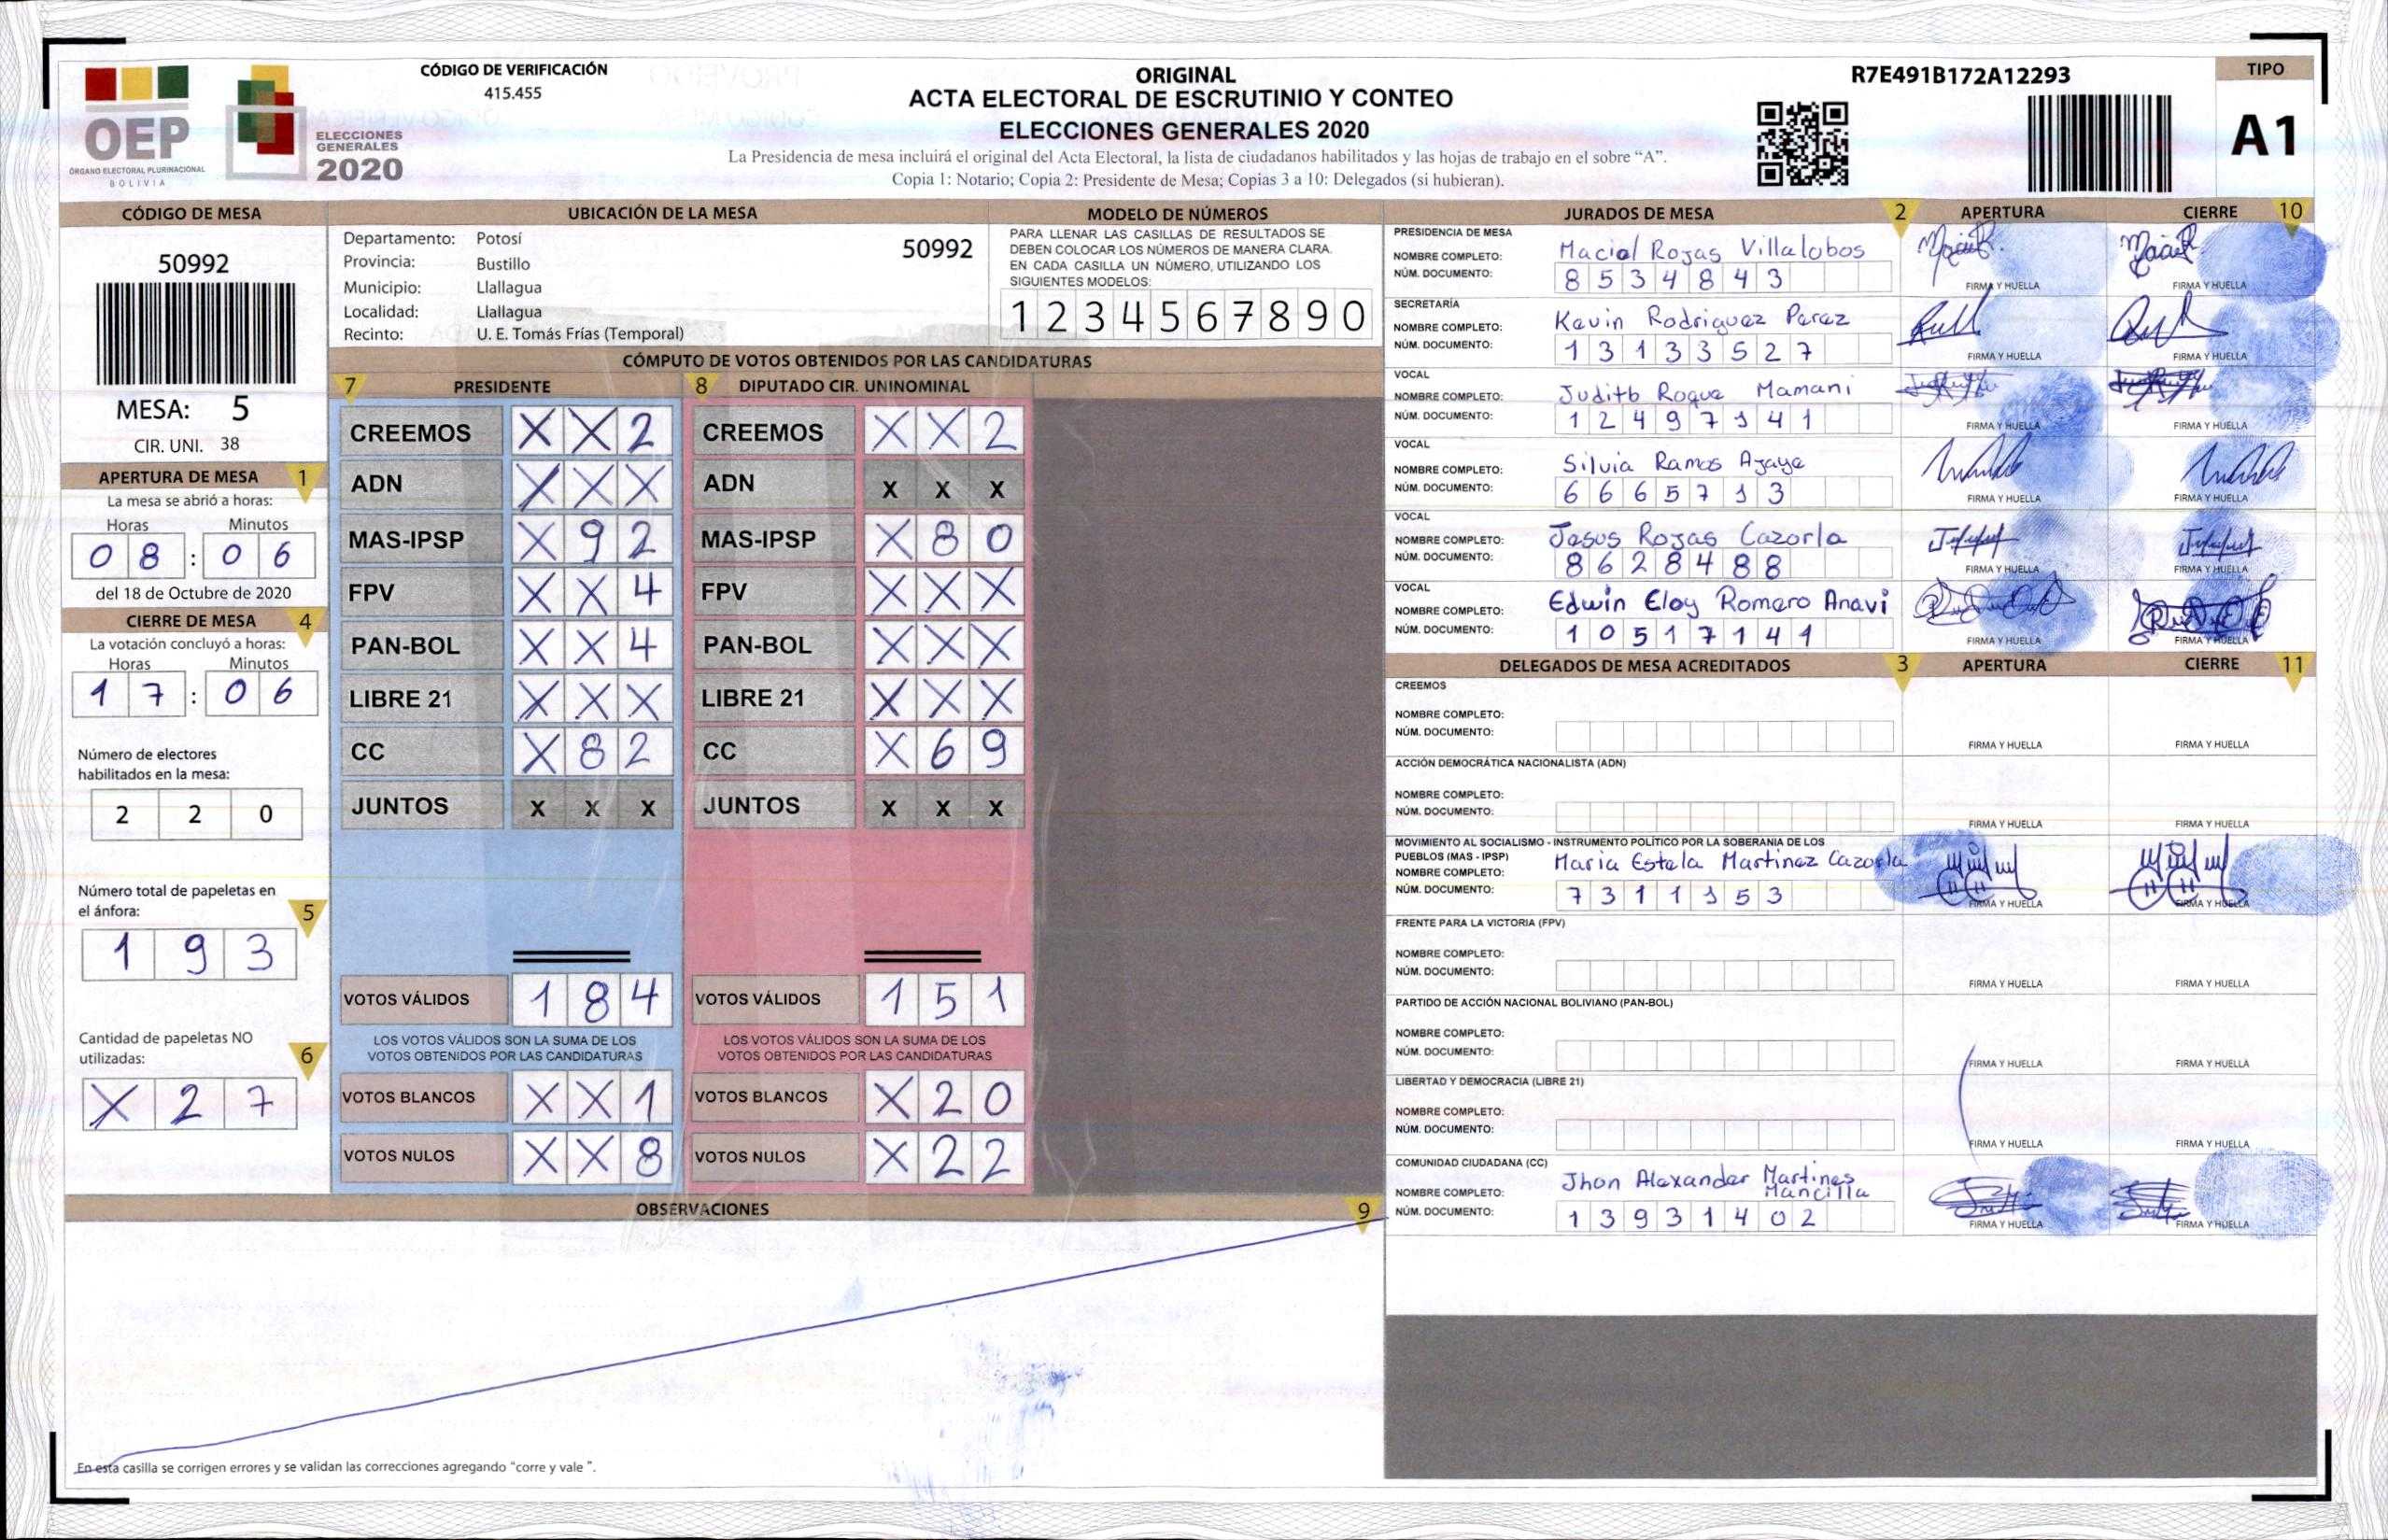 OEP
ÓRGANO ELECTORAL PLURINACIONAL
BOLIVIA
ELECCIONES
GENERALES
2020
CÓDIGO DE VERIFICACIÓN
415.455
ORIGINAL
ACTA ELECTORAL DE ESCRUTINIO Y CONTEO
ELECCIONES GENERALES 2020
La Presidencia de mesa incluirá el original del Acta Electoral, la lista de ciudadanos habilitados y las hojas de trabajo en el sobre “A”.
Copia 1: Notario; Copia 2: Presidente de Mesa; Copias 3 a 10: Delegados (si hubieran).
R7E491B172A12293
TIPO
A1
CÓDIGO DE MESA
50992
MESA: 5
CIR. UNI. 38
APERTURA DE MESA 1
La mesa se abrió a horas:
Horas Minutos
0 8 : 0 6
del 18 de Octubre de 2020
CIERRE DE MESA 4
La votación concluyó a horas:
Horas Minutos
1 7 : 0 6
Número de electores
habilitados en la mesa:
2 2 0
Número total de papeletas en
el ánfora: 5
1 9 3
Cantidad de papeletas NO
utilizadas: 6
X 2 7
UBICACIÓN DE LA MESA
Departamento: Potosí 50992
Provincia: Bustillo
Municipio: Llallagua
Localidad: Llallagua
Recinto: U. E. Tomás Frías (Temporal)
MODELO DE NÚMEROS
PARA LLENAR LAS CASILLAS DE RESULTADOS SE
DEBEN COLOCAR LOS NÚMEROS DE MANERA CLARA.
EN CADA CASILLA UN NÚMERO, UTILIZANDO LOS
SIGUIENTES MODELOS:
1 2 3 4 5 6 7 8 9 0
CÓMPUTO DE VOTOS OBTENIDOS POR LAS CANDIDATURAS
7 PRESIDENTE 8 DIPUTADO CIR. UNINOMINAL
CREEMOS X X 2 CREEMOS X X 2
ADN X X X ADN X X X
MAS-IPSP X 9 2 MAS-IPSP X 8 0
FPV X X 4 FPV X X X
PAN-BOL X X 4 PAN-BOL X X X
LIBRE 21 X X X LIBRE 21 X X X
CC X 8 2 CC X 6 9
JUNTOS X X X JUNTOS X X X
VOTOS VÁLIDOS 1 8 4 VOTOS VÁLIDOS 1 5 1
LOS VOTOS VÁLIDOS SON LA SUMA DE LOS LOS VOTOS VÁLIDOS SON LA SUMA DE LOS
VOTOS OBTENIDOS POR LAS CANDIDATURAS VOTOS OBTENIDOS POR LAS CANDIDATURAS
VOTOS BLANCOS X X 1 VOTOS BLANCOS X 2 0
VOTOS NULOS X X 8 VOTOS NULOS X 2 2
OBSERVACIONES 9
En esta casilla se corrigen errores y se validan las correcciones agregando "corre y vale ".
JURADOS DE MESA 2 APERTURA CIERRE 10
PRESIDENCIA DE MESA
NOMBRE COMPLETO: Maciel Rojas Villalobos
NÚM. DOCUMENTO: 8 5 3 4 8 4 3
FIRMA Y HUELLA FIRMA Y HUELLA
SECRETARÍA
NOMBRE COMPLETO: Kevin Rodriguez Perez
NÚM. DOCUMENTO: 1 3 1 3 3 5 2 7
FIRMA Y HUELLA FIRMA Y HUELLA
VOCAL
NOMBRE COMPLETO: Judith Roque Mamani
NÚM. DOCUMENTO: 1 2 4 9 7 1 4 1
FIRMA Y HUELLA FIRMA Y HUELLA
VOCAL
NOMBRE COMPLETO: Silvia Ramos
NÚM. DOCUMENTO: 6 6 6 5 7 1 3
FIRMA Y HUELLA FIRMA Y HUELLA
VOCAL
NOMBRE COMPLETO: Jesus Rojas Cazorla
NÚM. DOCUMENTO: 8 6 2 8 4 8 8
FIRMA Y HUELLA FIRMA Y HUELLA
VOCAL
NOMBRE COMPLETO: Edwin Eloy Romero Anavi
NÚM. DOCUMENTO: 1 0 5 1 7 1 4 1
FIRMA Y HUELLA FIRMA Y HUELLA
DELEGADOS DE MESA ACREDITADOS 3 APERTURA CIERRE 11
CREEMOS
NOMBRE COMPLETO:
NÚM. DOCUMENTO:
FIRMA Y HUELLA FIRMA Y HUELLA
ACCIÓN DEMOCRÁTICA NACIONALISTA (ADN)
NOMBRE COMPLETO:
NÚM. DOCUMENTO:
FIRMA Y HUELLA FIRMA Y HUELLA
MOVIMIENTO AL SOCIALISMO - INSTRUMENTO POLÍTICO POR LA SOBERANIA DE LOS
PUEBLOS (MAS - IPSP)
NOMBRE COMPLETO: Maria Estela Martinez Cazorla
NÚM. DOCUMENTO: 7 3 1 1 1 5 3
FIRMA Y HUELLA FIRMA Y HUELLA
FRENTE PARA LA VICTORIA (FPV)
NOMBRE COMPLETO:
NÚM. DOCUMENTO:
FIRMA Y HUELLA FIRMA Y HUELLA
PARTIDO DE ACCIÓN NACIONAL BOLIVIANO (PAN-BOL)
NOMBRE COMPLETO:
NÚM. DOCUMENTO:
FIRMA Y HUELLA FIRMA Y HUELLA
LIBERTAD Y DEMOCRACIA (LIBRE 21)
NOMBRE COMPLETO:
NÚM. DOCUMENTO:
FIRMA Y HUELLA FIRMA Y HUELLA
COMUNIDAD CIUDADANA (CC)
NOMBRE COMPLETO: Jhon Alexander Martines
Mancilla
NÚM. DOCUMENTO: 1 3 9 3 1 4 0 2
FIRMA Y HUELLA FIRMA Y HUELLA